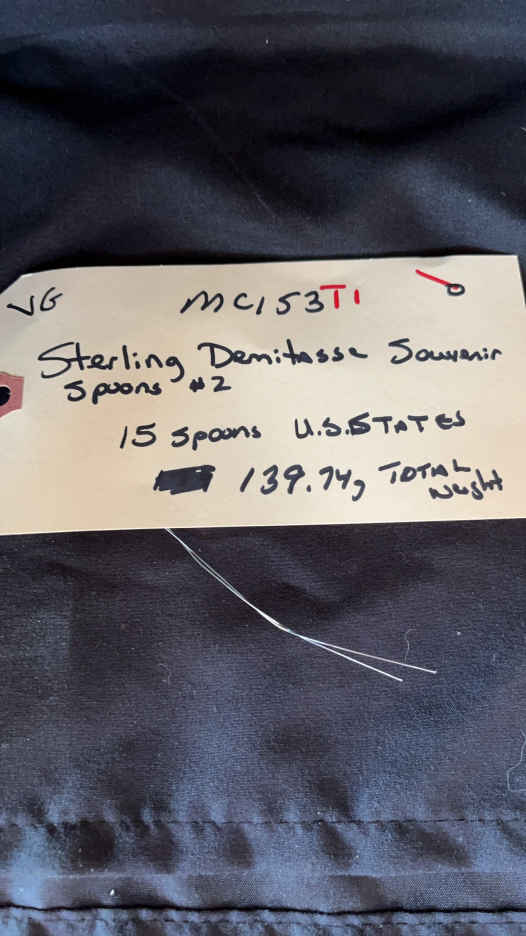 VG
MC153T1
Sterling Demitasse Souvenir
Spoons #2
15 Spoons U.S. STATES
139.74g TOTAL